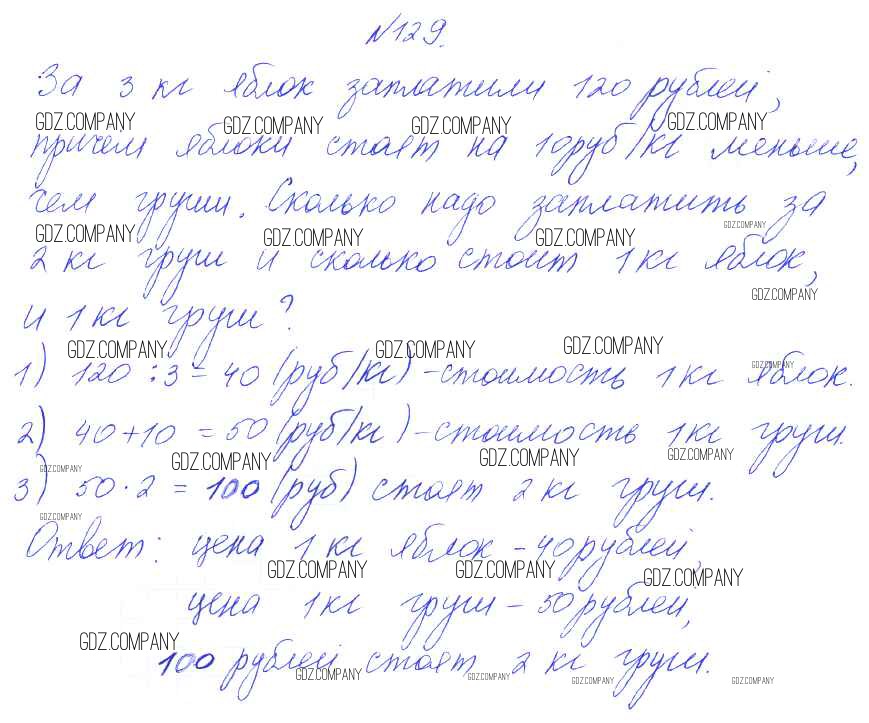 №129.
За 3 кг яблок заплатили 120 рублей,
GDZ.COMPANY GDZ.COMPANY GDZ.COMPANY GDZ.COMPANY
причём яблоки стоят на 10руб/кг меньше,
чем груши. Сколько надо заплатить за
GDZ.COMPANY GDZ.COMPANY GDZ.COMPANY GDZ.COMPANY
2 кг груш и сколько стоит 1 кг яблок,
GDZ.COMPANY
и 1 кг груш?
GDZ.COMPANY GDZ.COMPANY GDZ.COMPANY
1) 120 : 3 = 40 (руб/кг) - стоимость 1 кг яблок.
GDZ.COMPANY
2) 40 + 10 = 50 (руб/кг) - стоимость 1 кг груш.
GDZ.COMPANY GDZ.COMPANY GDZ.COMPANY GDZ.COMPANY
3) 50 · 2 = 100 (руб) стоят 2 кг груш.
GDZ.COMPANY
Ответ: цена 1 кг яблок - 40 рублей,
GDZ.COMPANY GDZ.COMPANY GDZ.COMPANY
цена 1 кг груш - 50 рублей,
GDZ.COMPANY
100 рублей стоят 2 кг груш.
GDZ.COMPANY GDZ.COMPANY GDZ.COMPANY GDZ.COMPANY